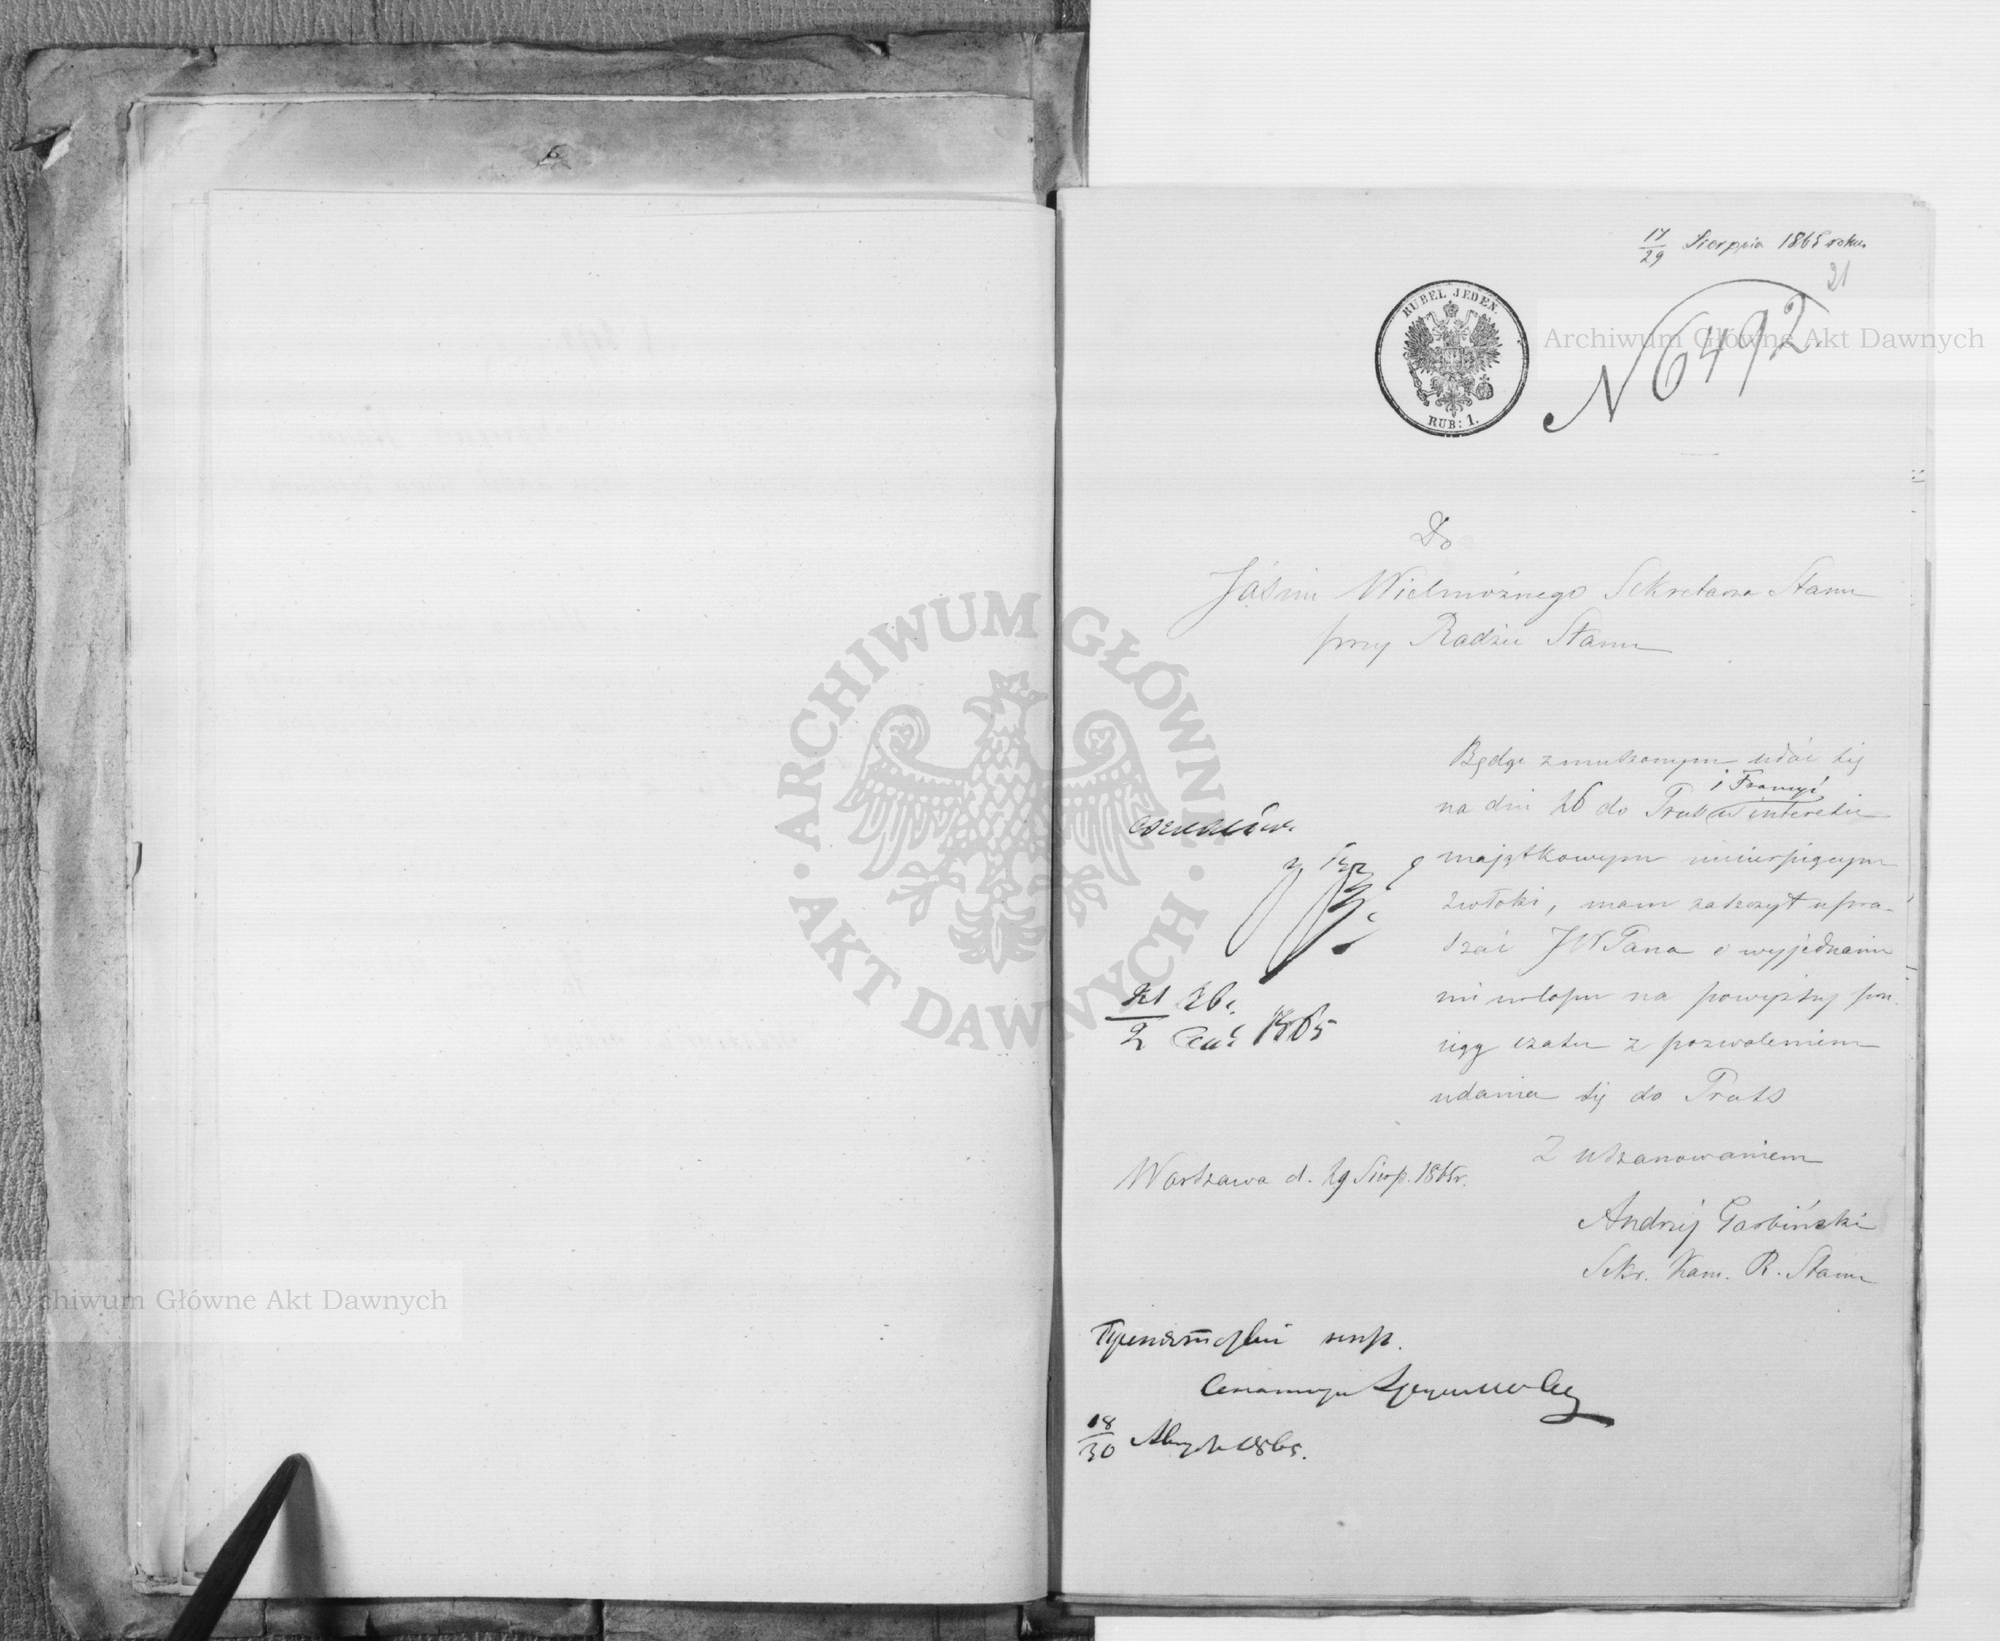 17/29 Sierpnia 1865 roku.
21
RUBEL JEDEN.
RUB: 1.
N 6492.
Archiwum Główne Akt Dawnych
Do
Jaśnie Wielmożnego Sekretarza Stanu
przy Radzie Stanu
Będąc zmuszonym udać się
i Francyi
na dni 26 do Prus w interesie
majątkowym niecierpiącym
zwłoki, mam zaszczyt upra-
szać JWPana o wyjednanie
mi urlopu na powyższy prze-
ciąg czasu z pozwoleniem
udania się do Prus
Z uszanowaniem
Warszawa d. 29 Sierp. 1865r.
Andrzej Garbiński
Sekr. Kom. R. Stanu
1865
18/30 1865.
ARCHIWUM GŁÓWNE AKT DAWNYCH
Archiwum Główne Akt Dawnych